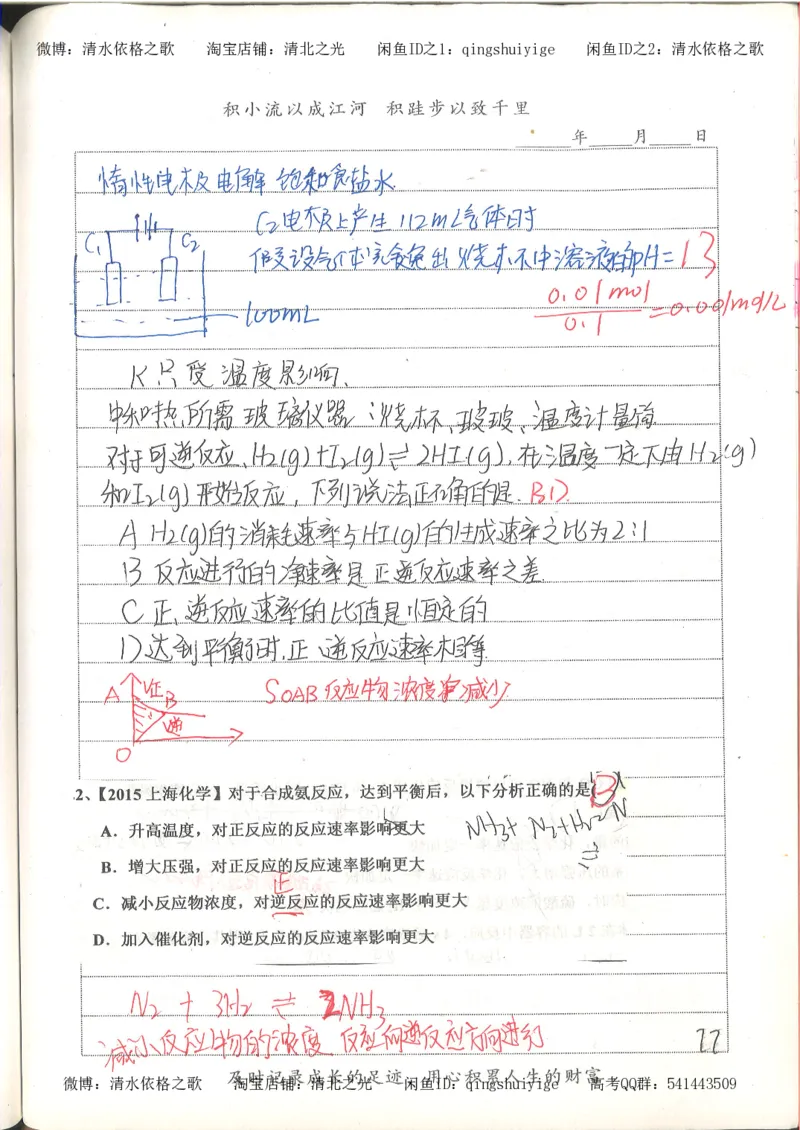 微博：清水依格之歌 淘宝店铺：清北之光 闲鱼ID之1：qingshuiyige 闲鱼ID之2：清水依格之歌
积小流以成江河 积跬步以致千里
年 月 日
惰性电极电解 饱和食盐水
C2电极上产生112mL气体时
C1 C2
假设气体完全逸出 烧杯中溶液的pH=13
0.01mol/0.1=0.001mol/L
100mL
K只受温度影响.
中和热所需玻璃仪器：烧杯、玻玻、温度计量筒
对于可逆反应、H2(g)+I2(g)⇌2HI(g),在温度一定下由H2(g)
和I2(g)开始反应，下列说法正确的是. BD
A H2(g)的消耗速率与HI(g)的生成速率之比为2:1
B 反应进行的净速率是正逆反应速率之差
C 正、逆反应速率的比值是恒定的
D 达到平衡时.正、逆反应速率相等
A V正 B 逆 O
SOAB 反应物浓度 减小
2、【2015上海化学】对于合成氨反应，达到平衡后，以下分析正确的是( B )
A．升高温度，对正反应的反应速率影响更大
NH3+ N2+H2
B．增大压强，对正反应的反应速率影响更大
正
C．减小反应物浓度，对逆反应的反应速率影响更大
D．加入催化剂，对逆反应的反应速率影响更大
N2 + 3H2 ⇌ 2NH3
减小反应物的浓度 反应向逆反应方向进行
77
及时记录成长的足迹 用心积累人生的财富
微博：清水依格之歌 淘宝店铺：清北之光 闲鱼ID：qingshuiyige 高考QQ群：541443509